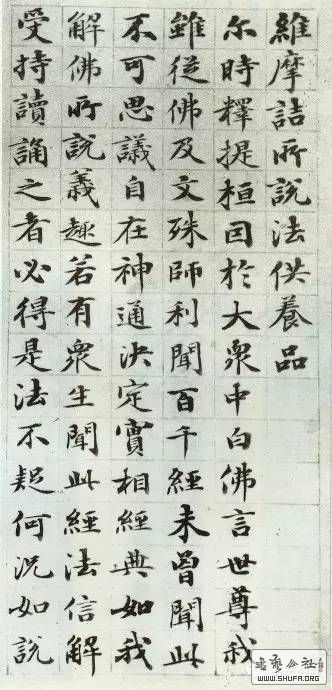 維摩詰所說法供養品
尒時釋提桓因於大衆中白佛言世尊我
雖從佛及文殊師利聞百千經未曾聞此
不可思議自在神通決定實相經典如我
解佛所說義趣若有衆生聞此經法信解
受持讀誦之者必得是法不疑何況如說
書藝公社
WWW.SHUFA.ORG